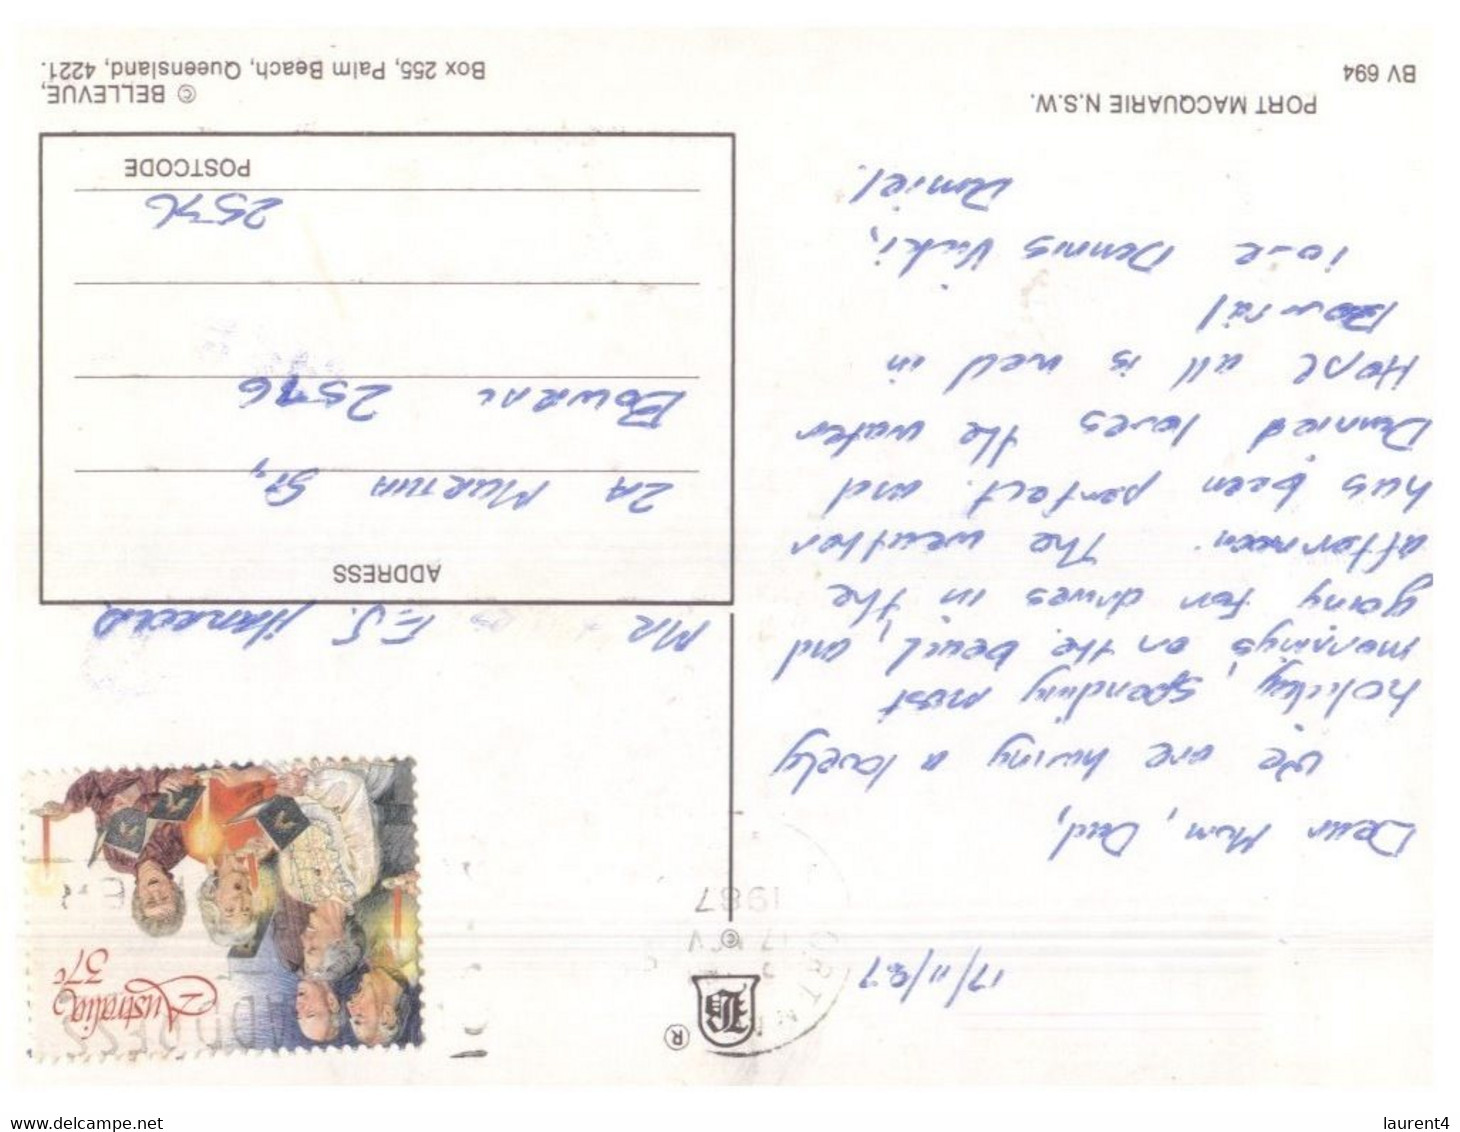 17/11/87
Dear Mum, Dad,
We are having a lovely
holiday, spending most
mornings on the beach, and
going for drives in the
afternoon. The weather
has been perfect. and
Daniel loves the water
Hope all is well in
Bowral
love Dennis Vicki,
Daniel.
PORT MACQUARIE N.S.W.
BV 694
®
©
17 NOV
1987
Australia
37c
MR E.S.
ADDRESS
2A MARTHA St,
BOWRAL 2576
2576
POSTCODE
© BELLEVUE,
Box 255, Palm Beach, Queensland, 4221.
www.delcampe.net
laurent4